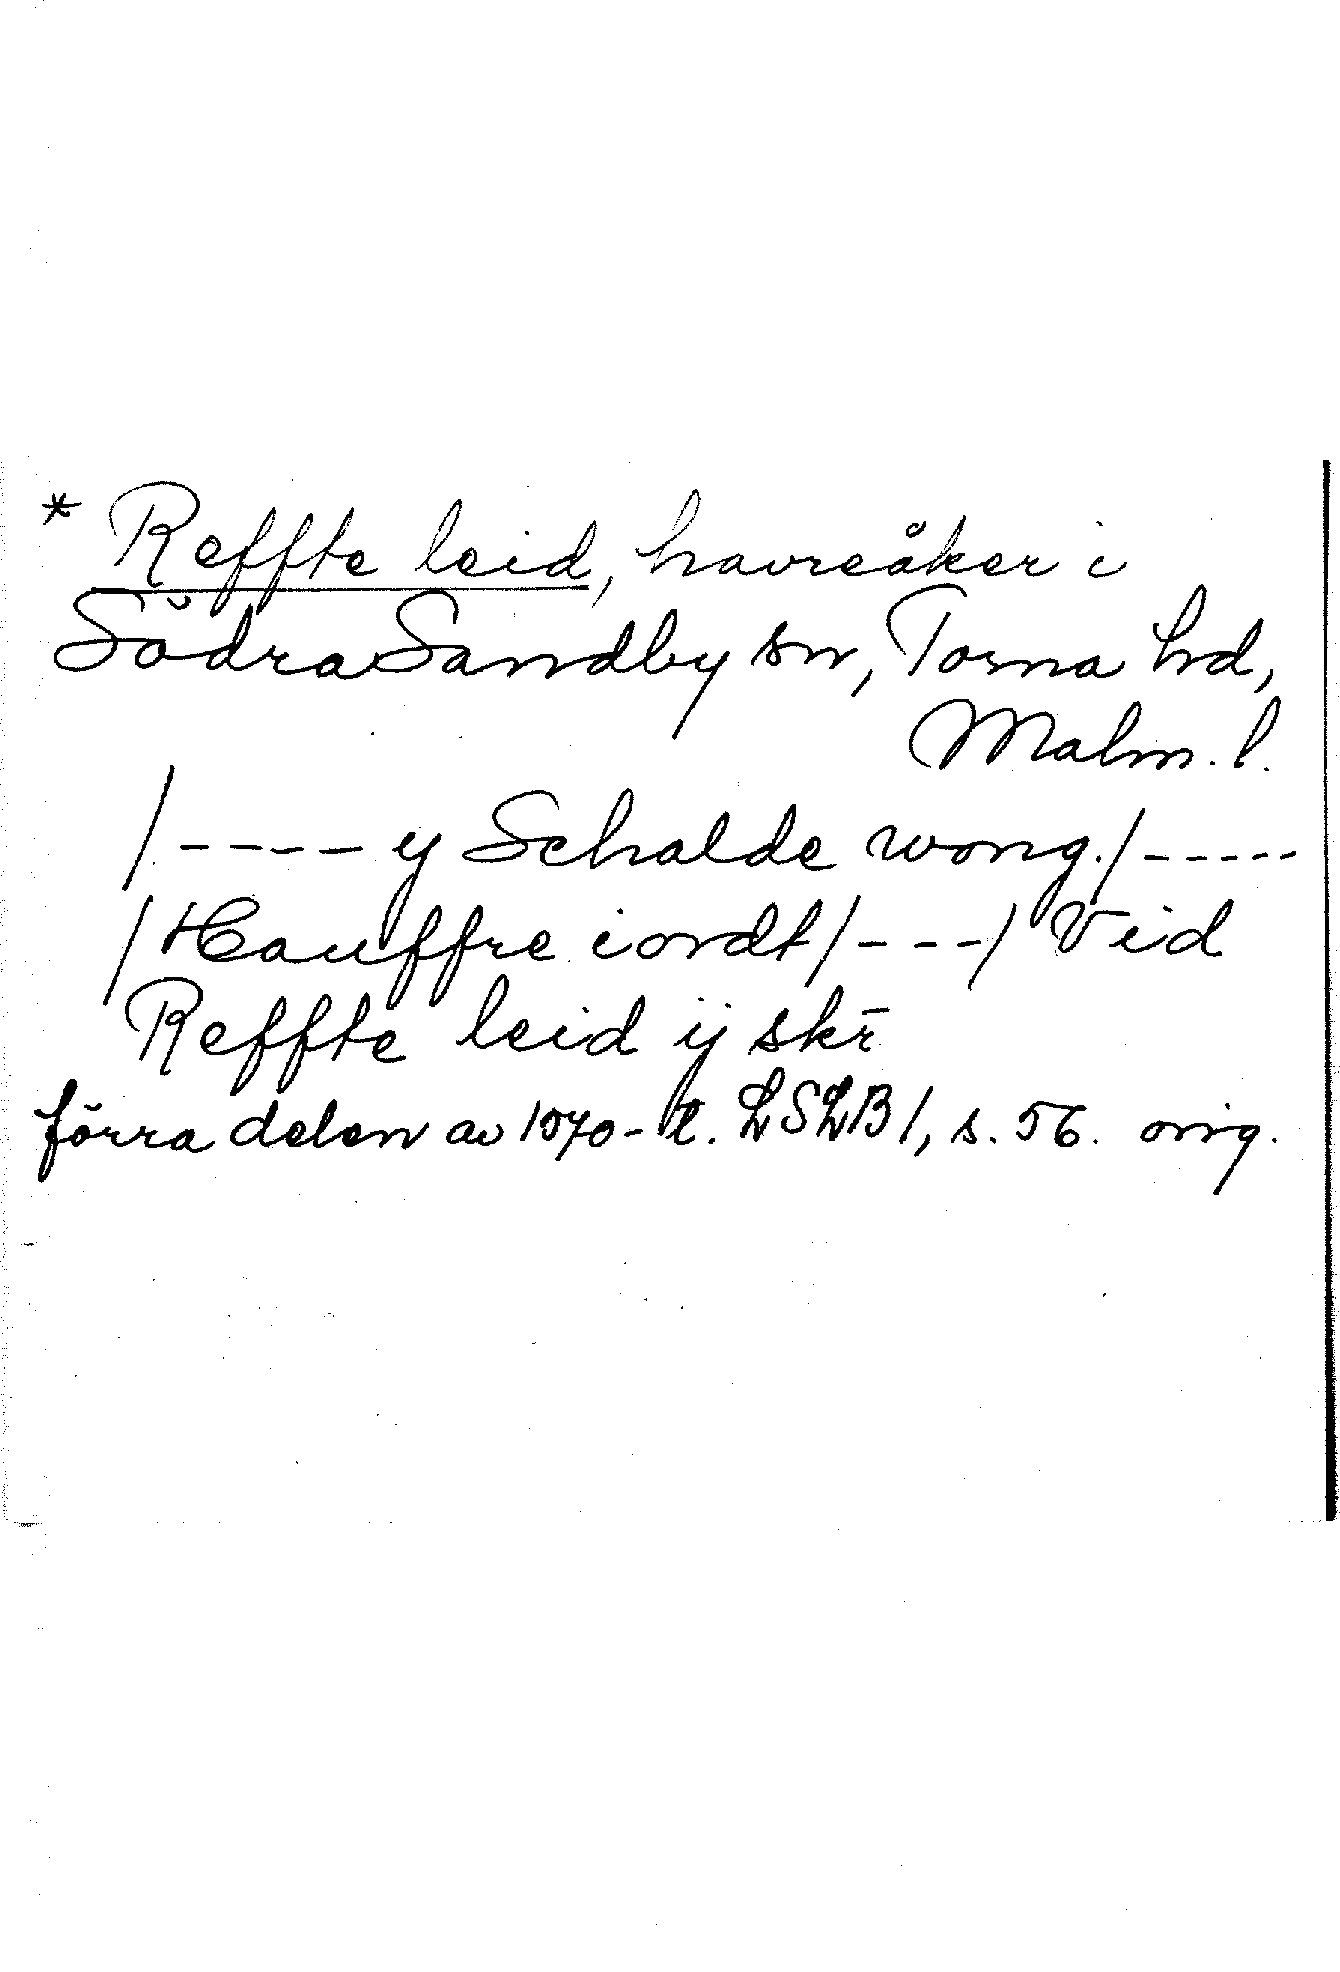 * Reffte leid, havreåker i
Södra Sandby sn, Torna hd,
Malm. l.
/---- y Schalde wong./-----
/Hauffre iordt/---/ Vid
Reffte leid ij skr̄
förra delen av 1570-t. LSLB 1, s. 56. orig.